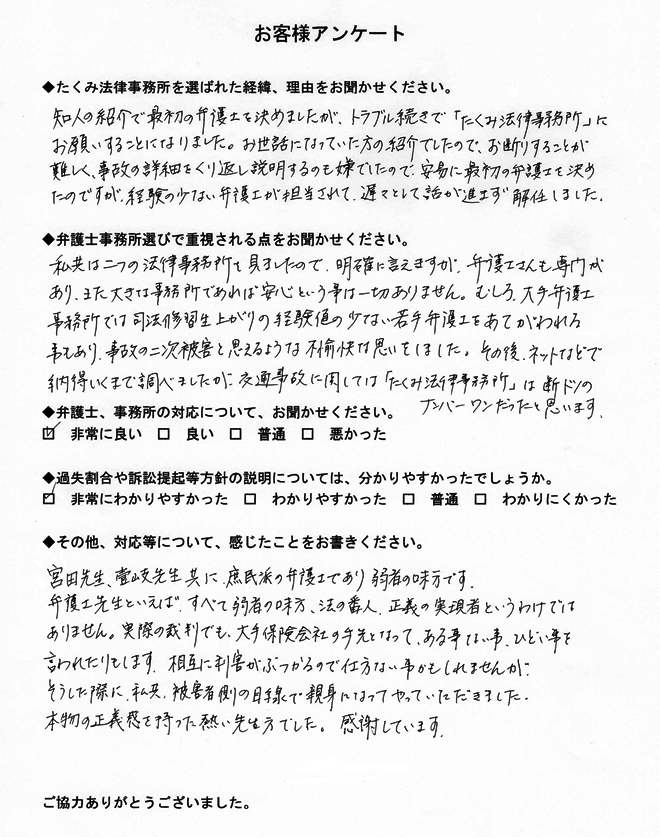 お客様アンケート
◆たくみ法律事務所を選ばれた経緯、理由をお聞かせください。
知人の紹介で最初の弁護士を決めましたが、トラブル続きで「たくみ法律事務所」に
お願いすることになりました。お世話になっていた方の紹介でしたので、お断りすることが
難しく、事故の詳細をくり返し説明するのも嫌でしたので、安易に最初の弁護士を決め
たのですが、経験の少ない弁護士が担当されて、遅々として話が進まず解任しました。
◆弁護士事務所選びで重視される点をお聞かせください。
私共は二つの法律事務所を見ましたので、明確に言えますが、弁護士さんも専門が
あり、また大きな事務所であれば安心という事は一切ありません。むしろ、大手弁護士
事務所では司法修習生上がりの経験値の少ない若手弁護士をあてがわれる
事もあり、事故の二次被害と思えるような不愉快な思いをしました。その後、ネットなどで
納得いくまで調べましたが、交通事故に関しては「たくみ法律事務所」は断トツの
ナンバーワンだったと思います。
◆弁護士、事務所の対応について、お聞かせください。
☑ 非常に良い □ 良い □ 普通 □ 悪かった
◆過失割合や訴訟提起等方針の説明については、分かりやすかったでしょうか。
☑ 非常にわかりやすかった □ わかりやすかった □ 普通 □ わかりにくかった
◆その他、対応等について、感じたことをお書きください。
宮田先生、壹岐先生共に、庶民派の弁護士であり弱者の味方です。
弁護士先生といえば、すべて弱者の味方、法の番人、正義の実現者というわけでは
ありません。実際の裁判でも、大手保険会社の手先となって、ある事ない事、ひどい事を
言われたりもします。相互に利害がぶつかるので仕方ない事かもしれませんが、
そうした際に、私共、被害者側の目線で親身になってやっていただきました。
本物の正義感を持った熱い先生方でした。感謝しています。
ご協力ありがとうございました。